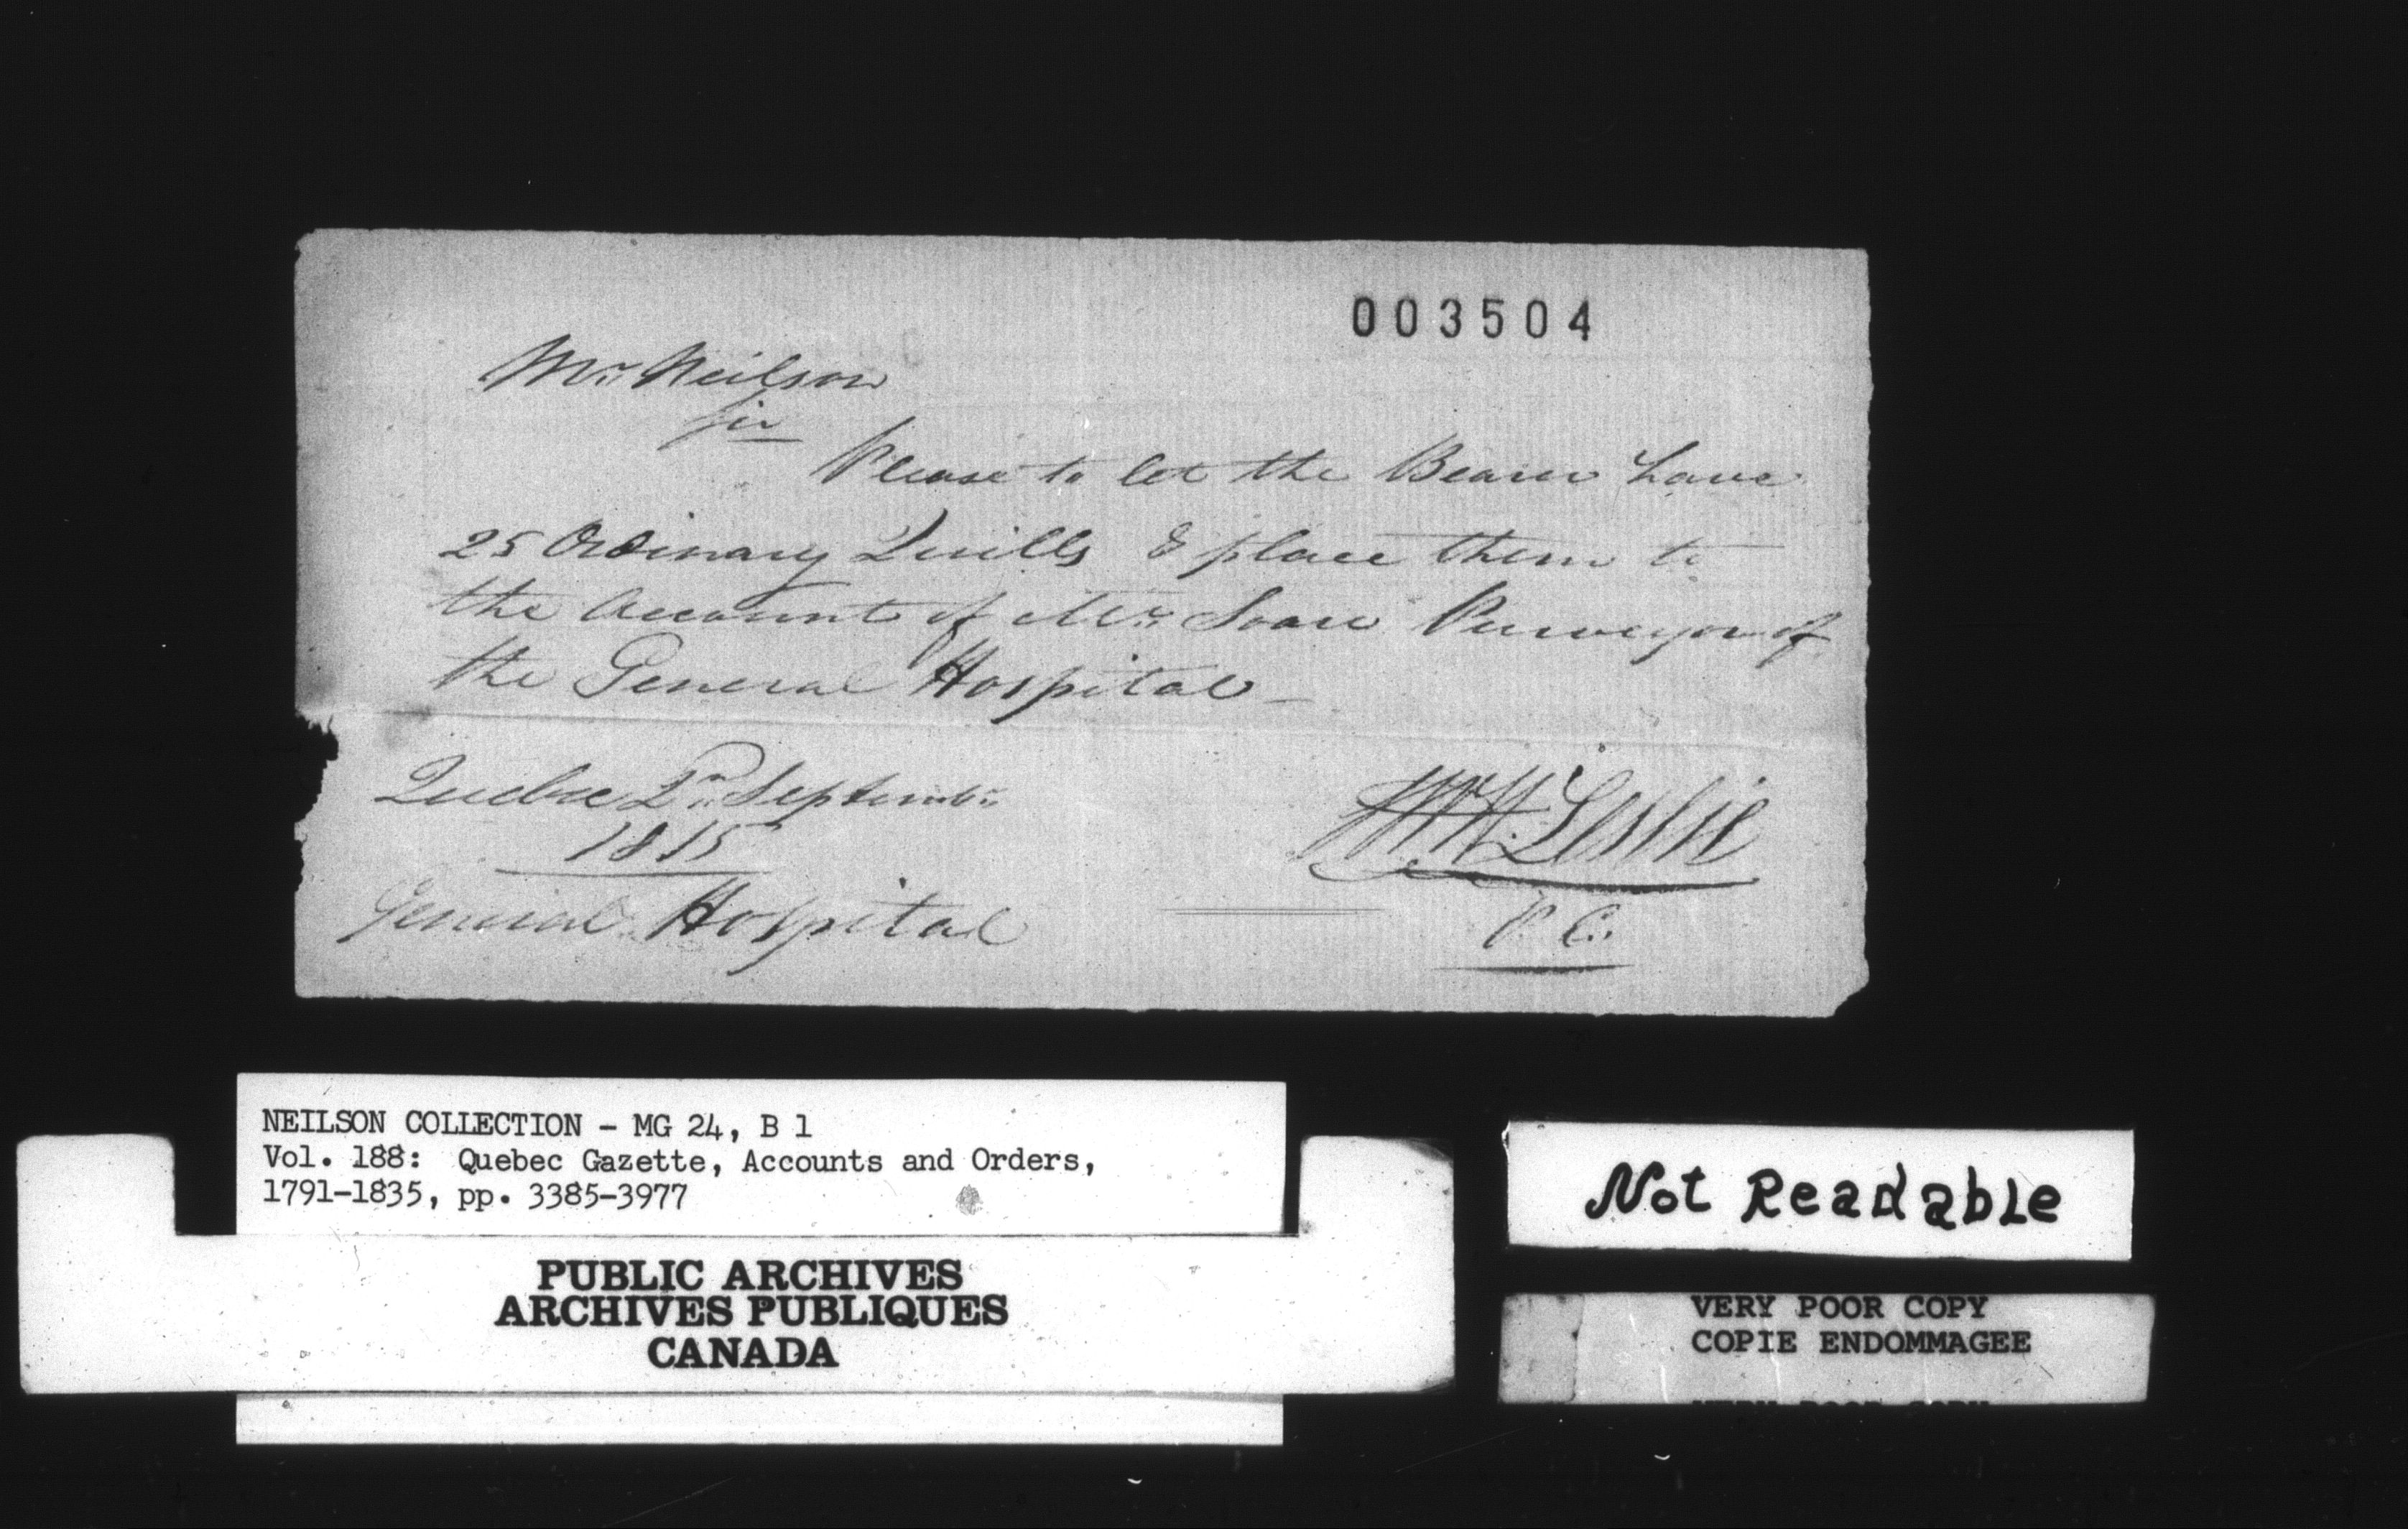 003504
Mr. Neilson
Sir
Please to let the Bearer have
25 Ordinary Quills & place them to
the Account of Mr. Purveyor of
the General Hospital
Quebec Septembr.
1815
General Hospital
Leslie
P. C.
NEILSON COLLECTION - MG 24, B 1
Vol. 188: Quebec Gazette, Accounts and Orders,
1791-1835, pp. 3385-3977
PUBLIC ARCHIVES
ARCHIVES PUBLIQUES
CANADA
Not Readable
VERY POOR COPY
COPIE ENDOMMAGEE
VERY POOR COPY